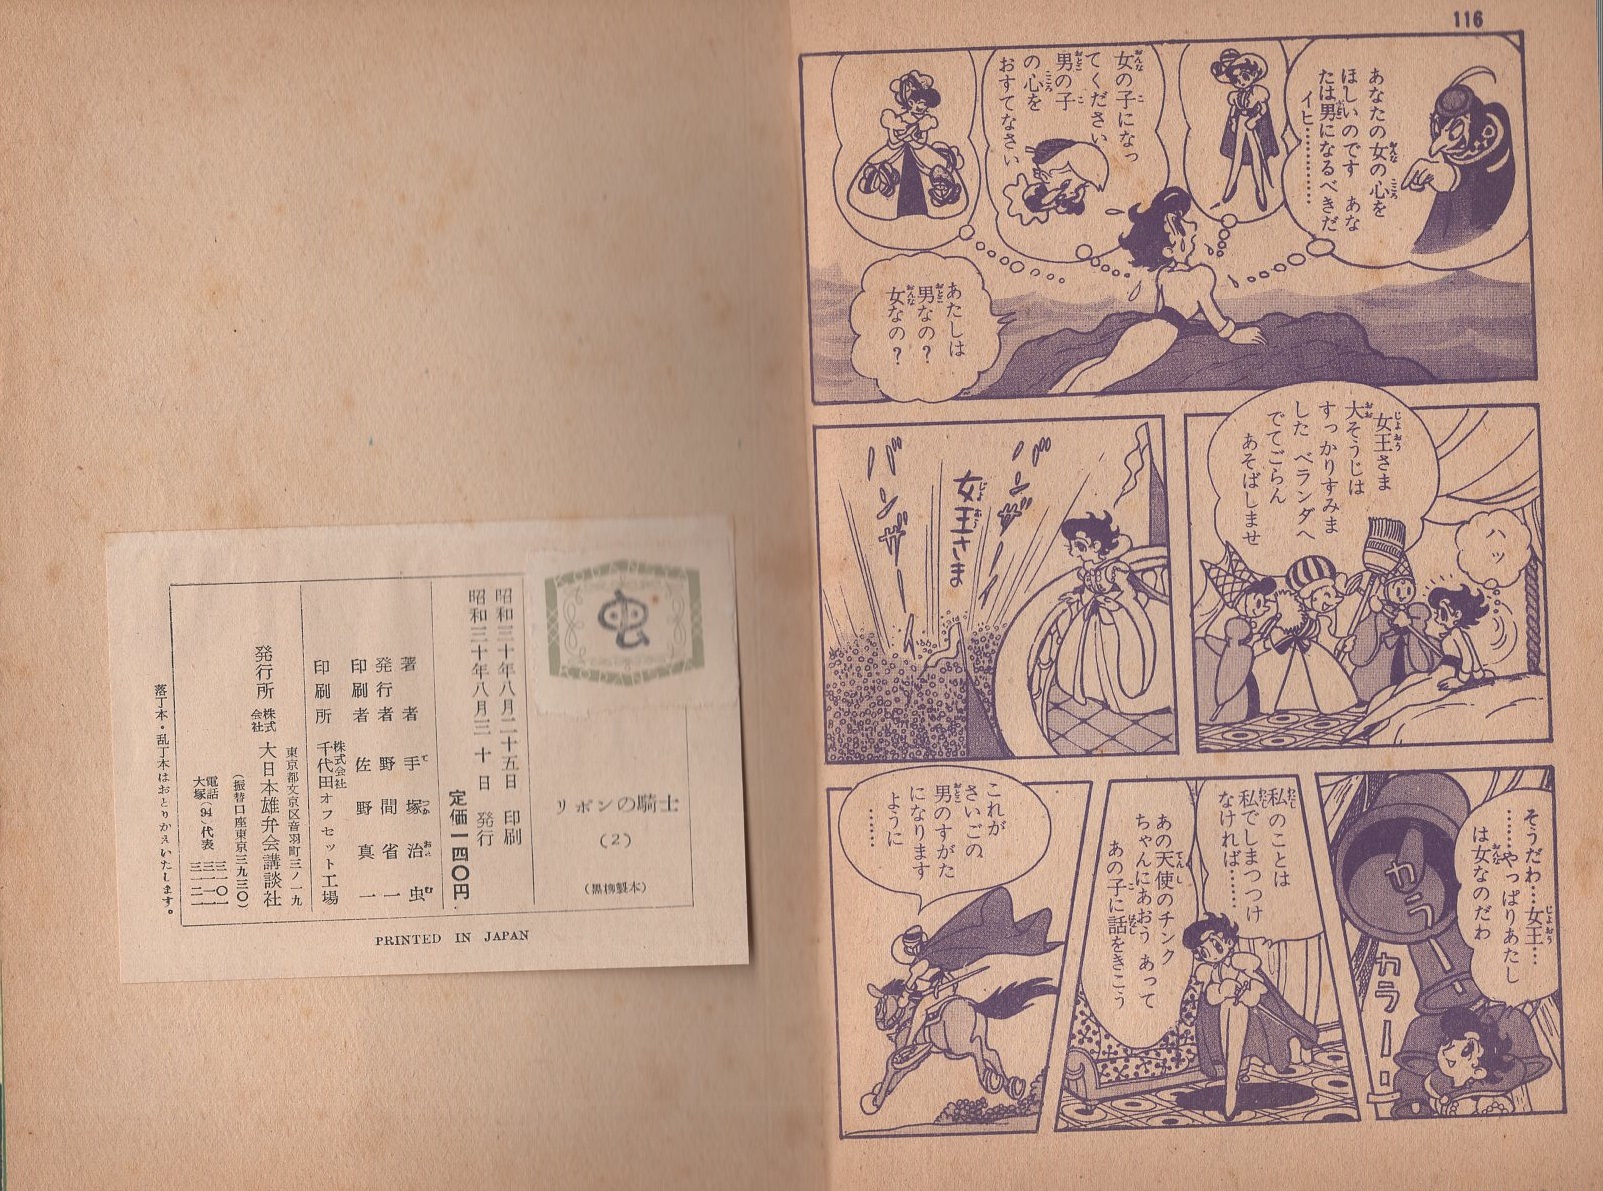 116
あなたの女の心を
ほしいのです あな
たは男になるべきだ
イヒ…………
女の子になっ
てください
男の子
の心を
おすてなさい
あたしは
男なの？
女なの？
女王さま
大そうじは
すっかりすみま
した ベランダへ
でてごらん
あそばしませ
ハッ
バンザーイ
女王さま
バンザーイ
そうだわ…女王…
……やっぱりあたし
は女なのだわ
カラーン
カラーン
私のことは
私でしまつつけ
なければ……
あの天使のチンク
ちゃんにあおう あって
あの子に話をきこう
これが
さいごの
男のすがた
になります
ように
……
KODANSYA
虫
KODANSYA
リボンの騎士
(2)
(黒柳製本)
昭和三十年八月二十五日 印刷
昭和三十年八月三十日 発行
定価一四〇円
著者 手塚治虫
発行者 野間省一
印刷者 佐野真一
印刷所 株式会社 千代田オフセット工場
東京都文京区音羽町三ノ一九
発行所 株式会社 大日本雄弁会講談社
(振替口座東京三九三〇)
電話大塚(94)代表
落丁本・乱丁本はおとりかえいたします。
PRINTED IN JAPAN